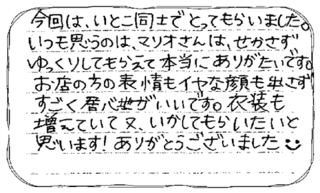 今回は、いとこ同士でとってもらいました。
いつも思うのは、マリオさんは、せかさず
ゆっくりしてもらえて本当にありがたいです。
お店の方の表情もイヤな顔も出さず
すごく居心地がいいです。衣装も
増えていて又、いかしてもらいたいと
思います！ありがとうございました